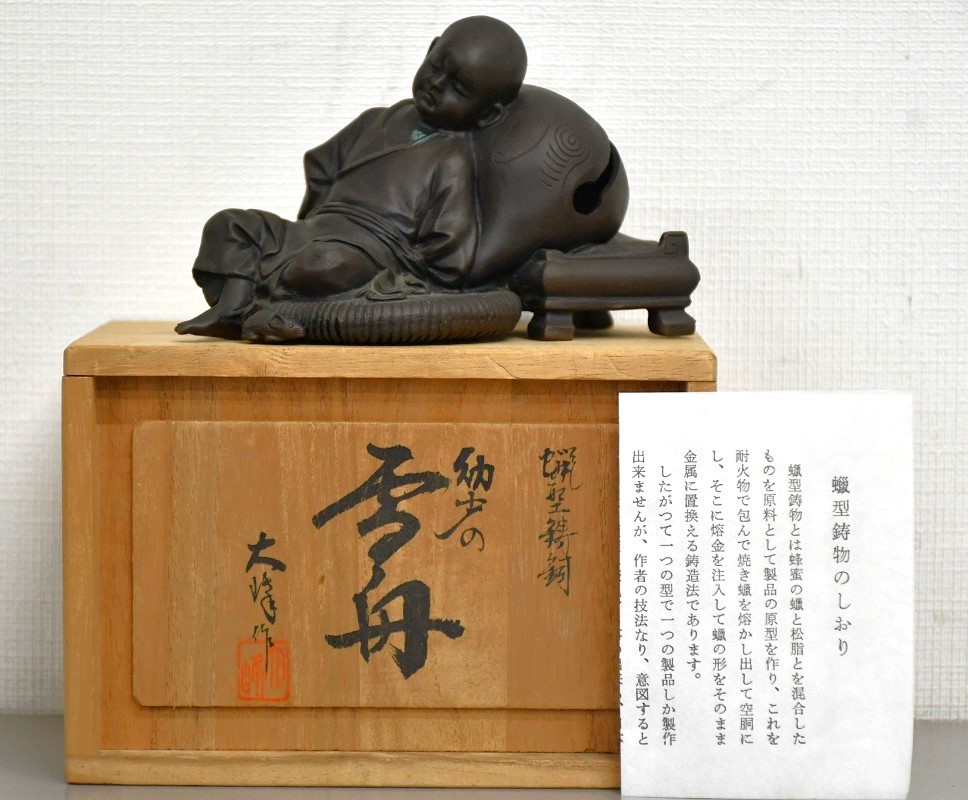 蠟型鋳銅
幼少の
雪舟
大峰作
蠟型鋳物のしおり
蠟型鋳物とは蜂蜜の蠟と松脂とを混合した
ものを原料として製品の原型を作り、これを
耐火物で包んで焼き蠟を熔かし出して空胴に
し、そこに熔金を注入して蠟の形をそのまま
金属に置換える鋳造法であります。
したがつて一つの型で一つの製品しか製作
出来ませんが、作者の技法なり、意図すると